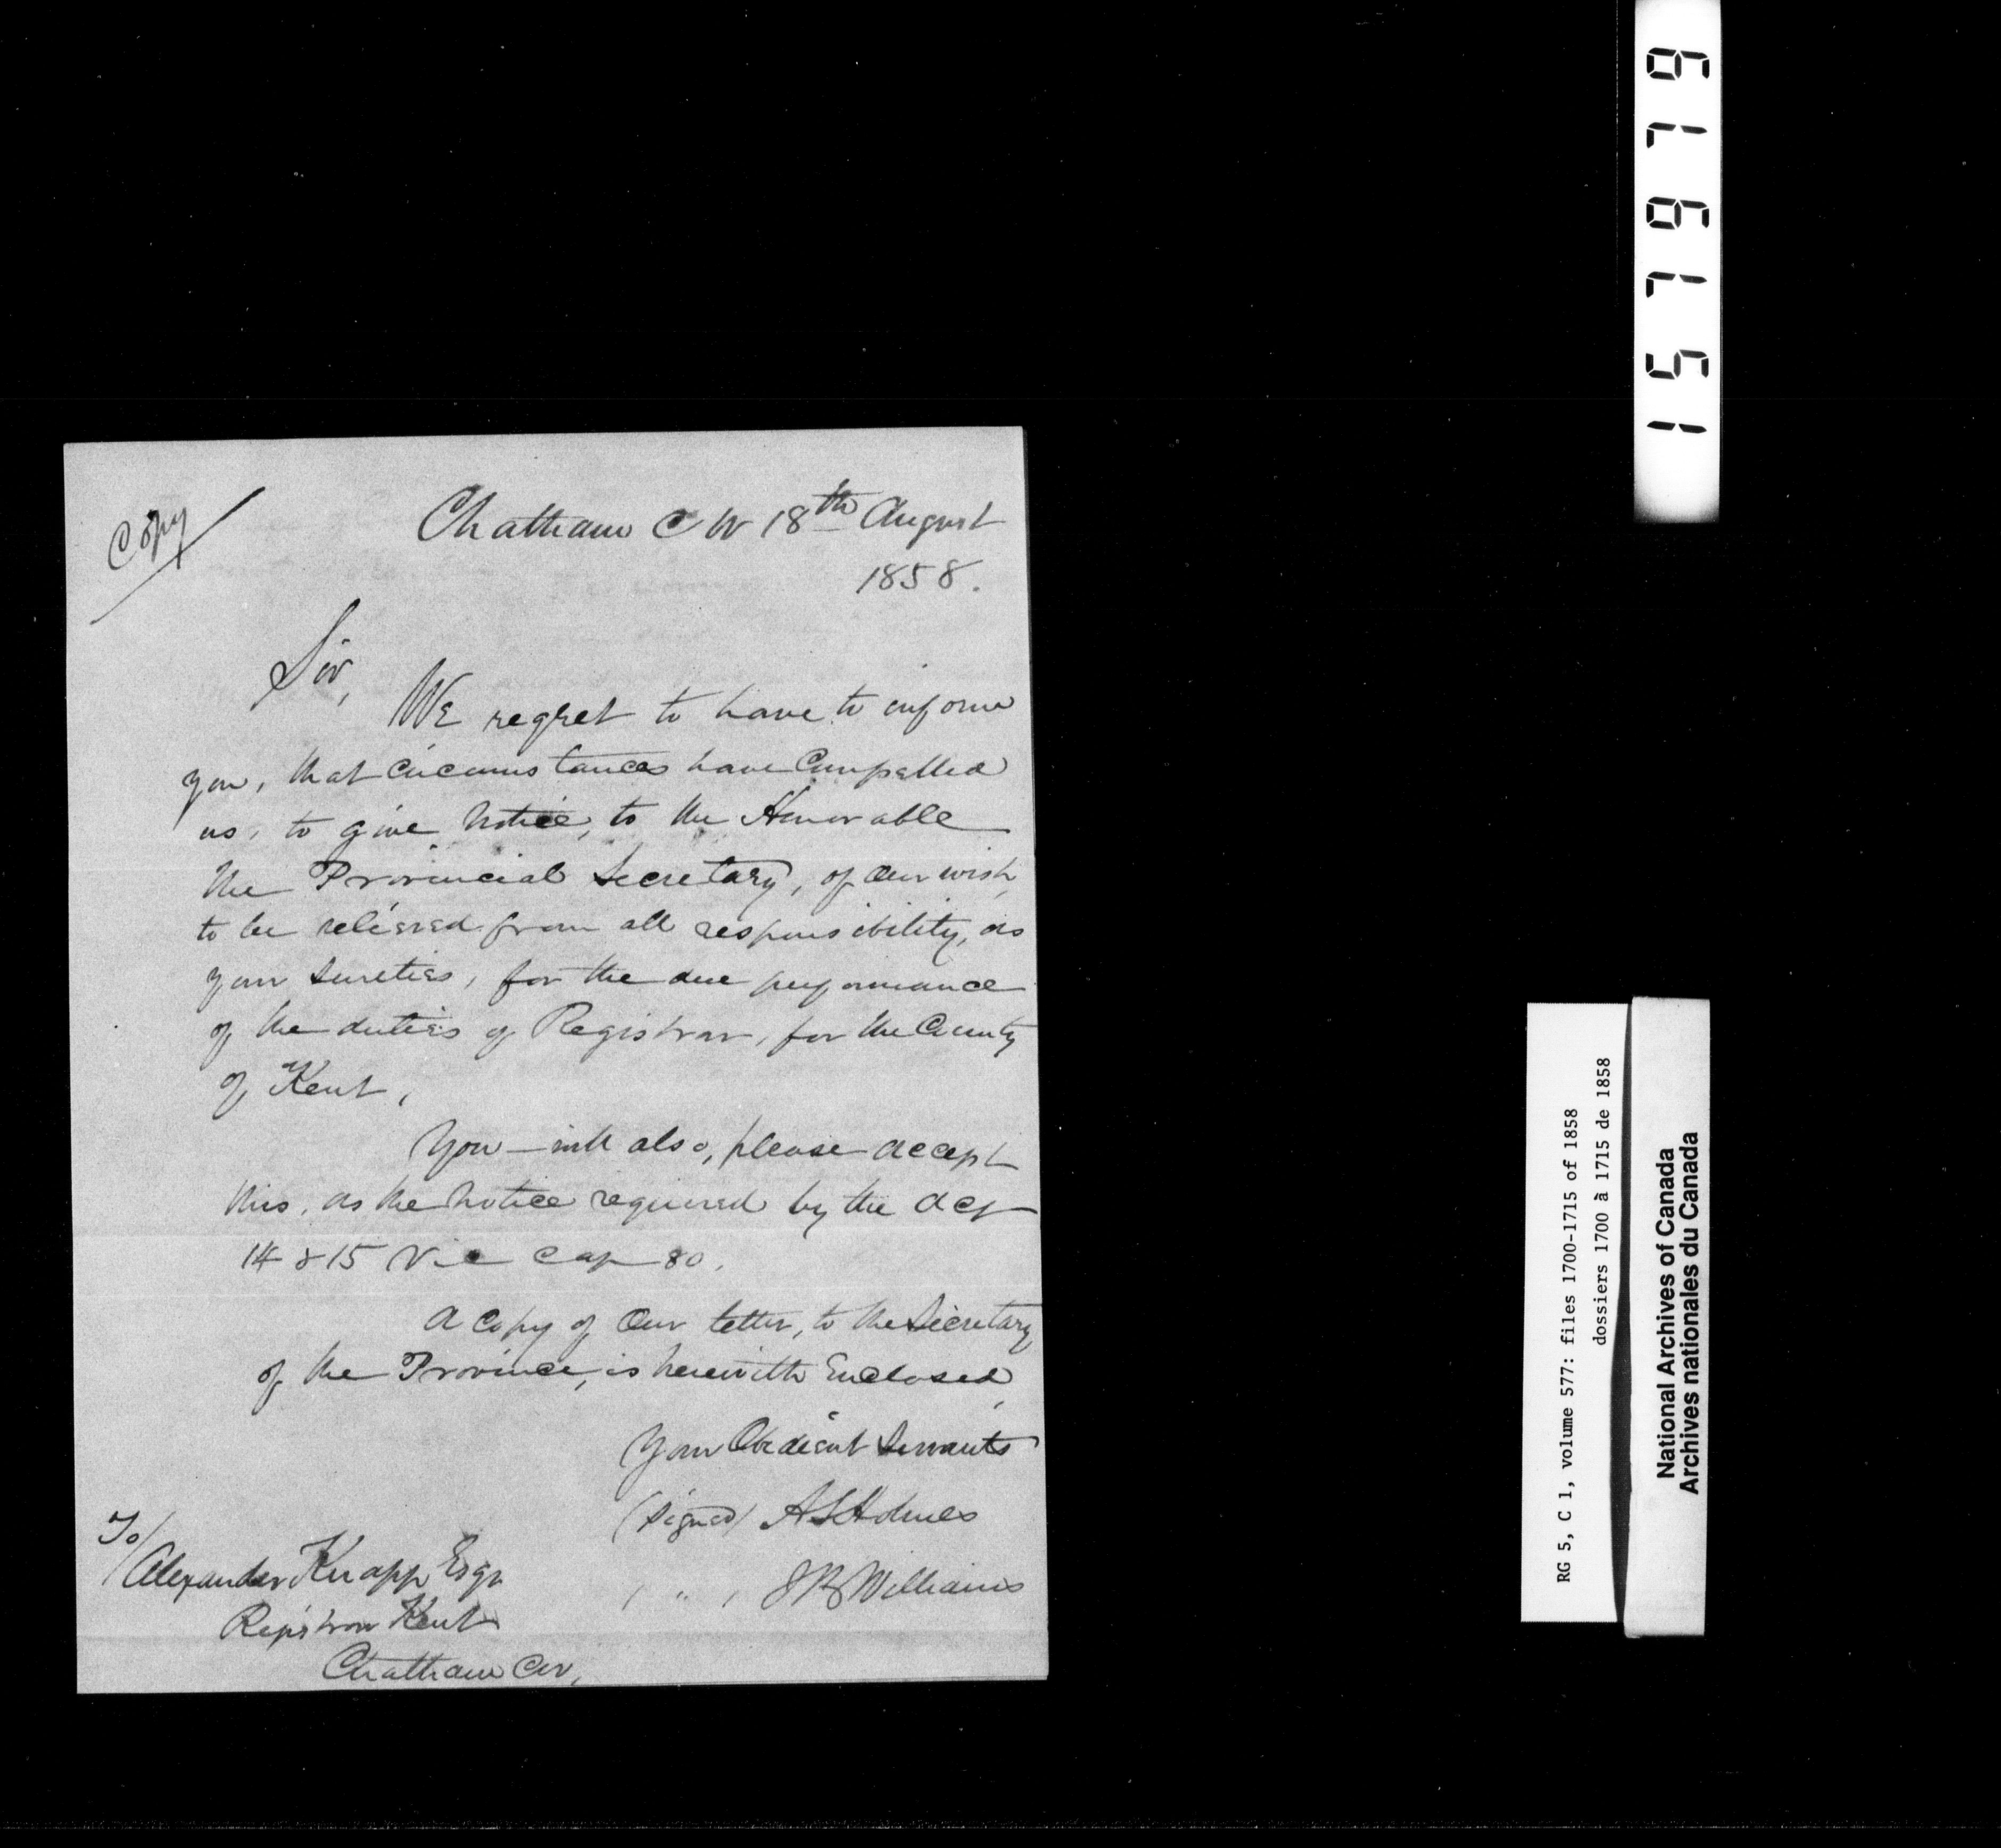 Copy
Chatham C W 18th August
1858.
Sir,
We regret to have to inform
you, that circumstances have Compelled
us, to give notice, to the Honorable
the Provincial Secretary, of Our wish
to be relieved from all responsibility, as
your sureties, for the due performance
of the duties of Registrar, for the County
of Kent,
You will also, please accept
this, as the notice required by the Act
14 & 15 Vic Cap 80.
A Copy of Our letter, to the Secretary
of the Province, is herewith Enclosed
Your Obedient Servants
(Signed) A S Holmes
( " ) J B Williams
To/
Alexander Knapp Esqr
Registrar Kent
Chatham CW,
151619
RG 5, C 1, volume 577: files 1700-1715 of 1858
dossiers 1700 à 1715 de 1858
National Archives of Canada
Archives nationales du Canada